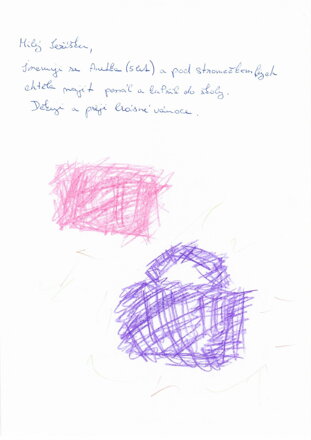 Milý Ježíšku,
Jmenuji se Anetka (5 let) a pod stromečkem bych
chtěla najít penál a batoh do školy.
Děkuji a přeji krásné vánoce.